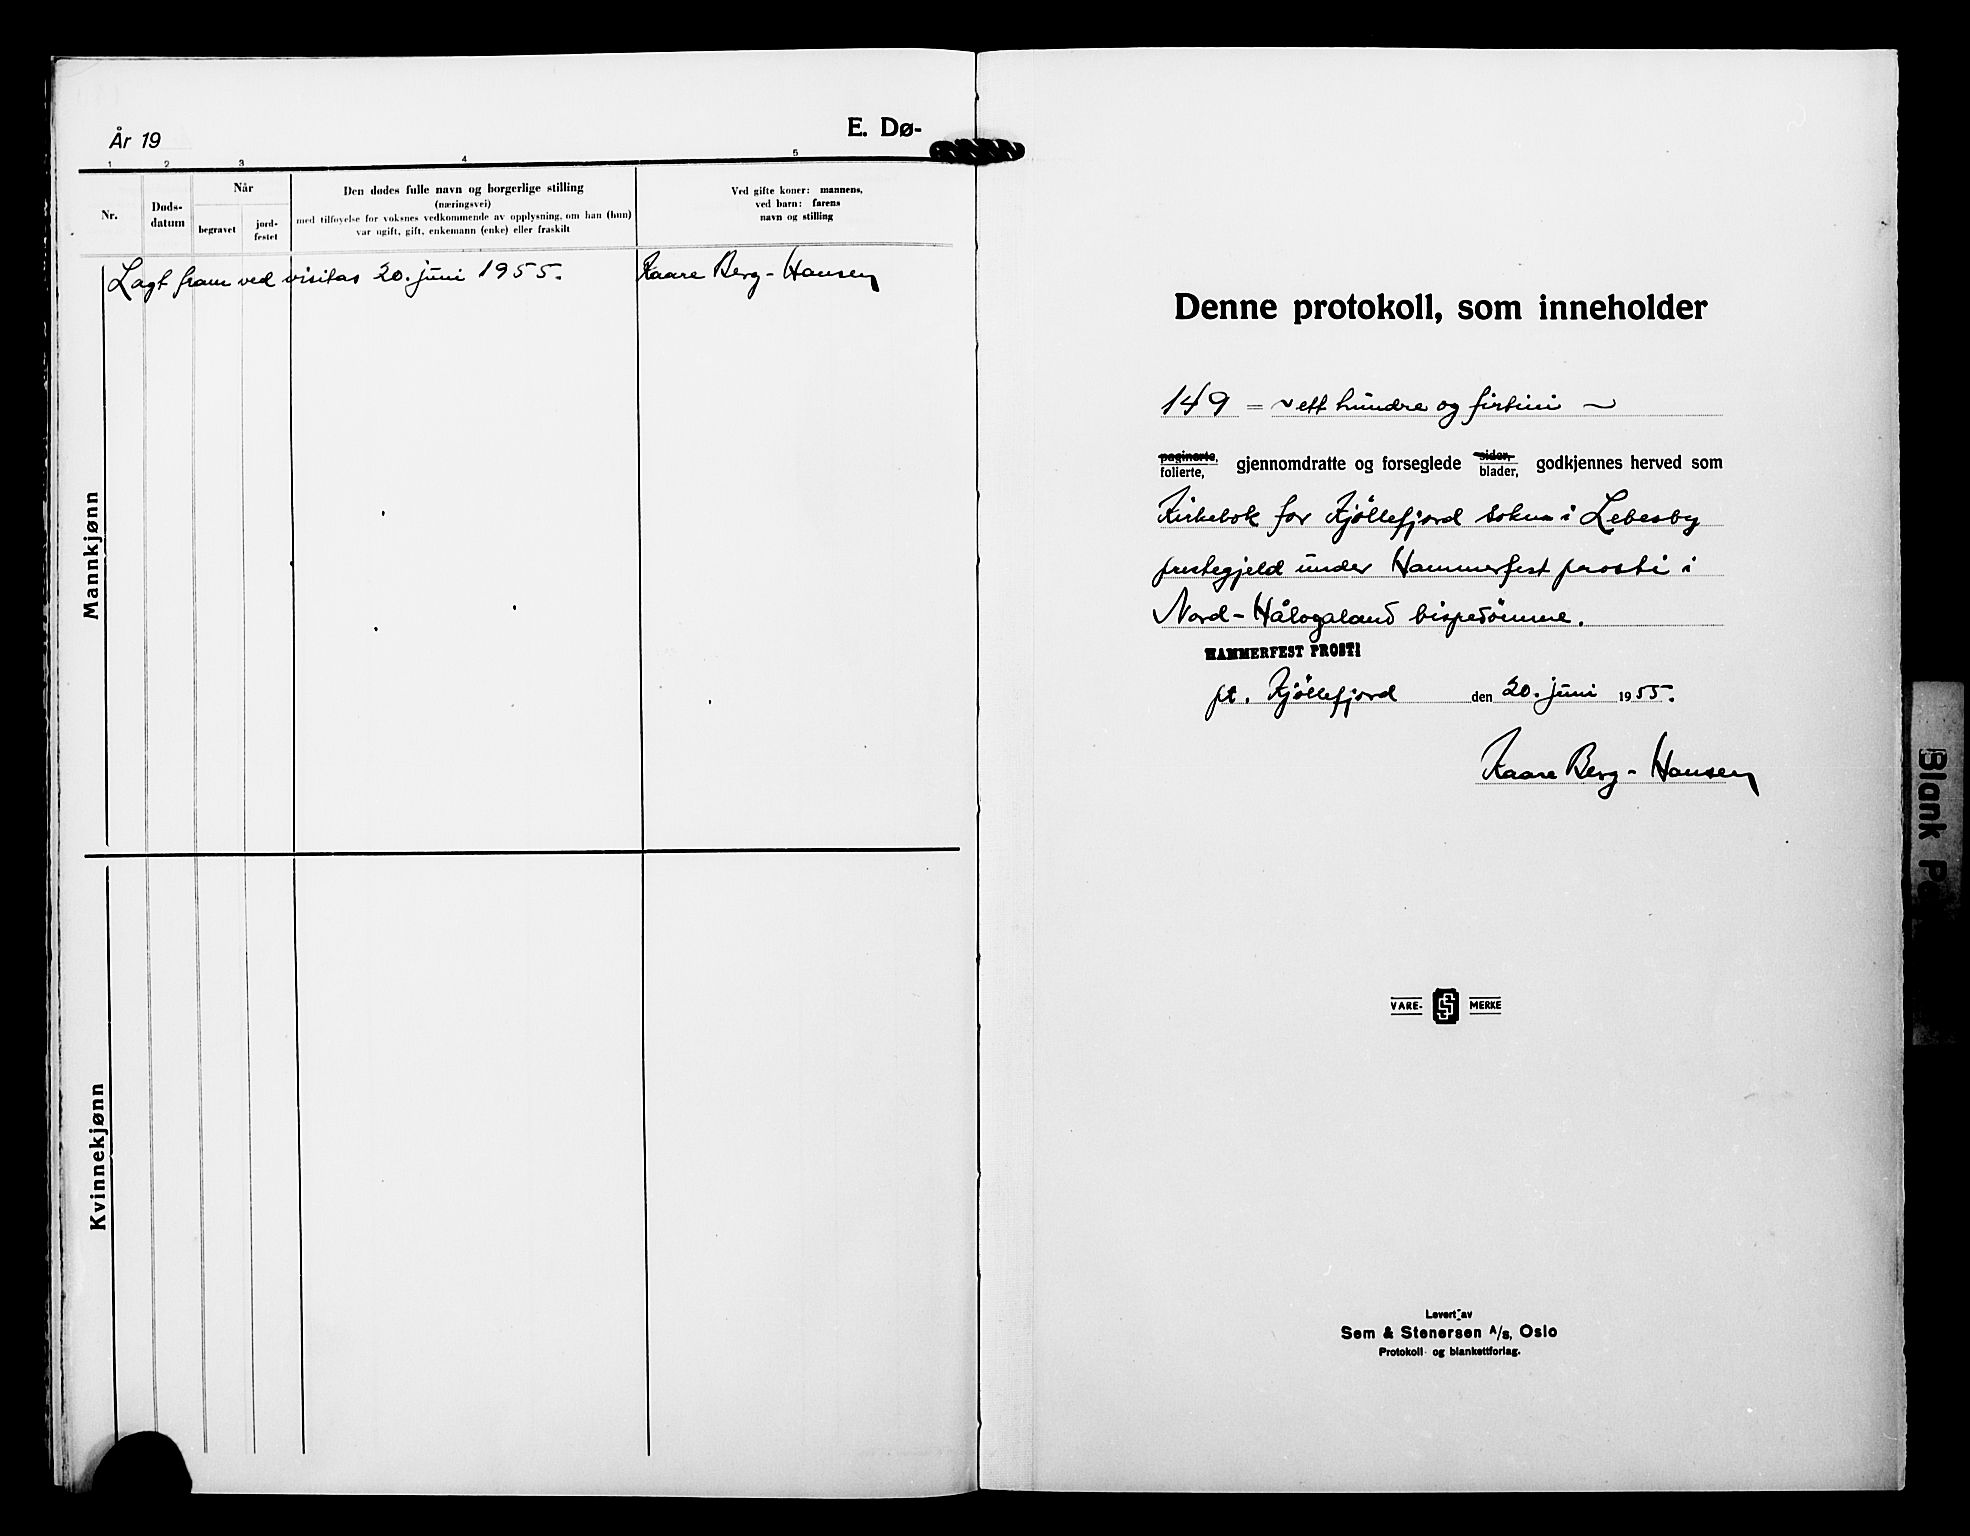 År 19
E. Dø-
1 2 3 4 5
Nr.
Døds-
datum
Når
begravet
jord-
festet
Den dødes fulle navn og borgerlige stilling
(næringsvei)
med tilføyelse for voksnes vedkommende av opplysning, om han (hun)
var ugift, gift, enkemann (enke) eller fraskilt
Ved gifte koner: mannens,
ved barn: farens
navn og stilling
Lagt fram ved visitas 20. juni 1955. Kaare Berg-Hansen
Mannkjønn
Kvinnekjønn
Denne protokoll, som inneholder
149 = ett hundre og førtini
paginerte, folierte, gjennomdratte og forseglede sider, blader, godkjennes herved som
Kirkebok for Kjöllefjord sokn i Lebesby
prestegjeld under Hammerfest prosti i
Nord-Hålogaland bispedömme.
HAMMERFEST PROSTI
pt. Kjöllefjord den 20. juni 1955.
Kaare Berg-Hansen
VARE- MERKE
Levert av
Sem & Stenersen A/s, Oslo
Protokoll- og blankettforlag.
Blank